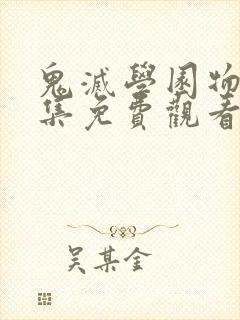 鬼滅學園物
集免費觀看
吴某金